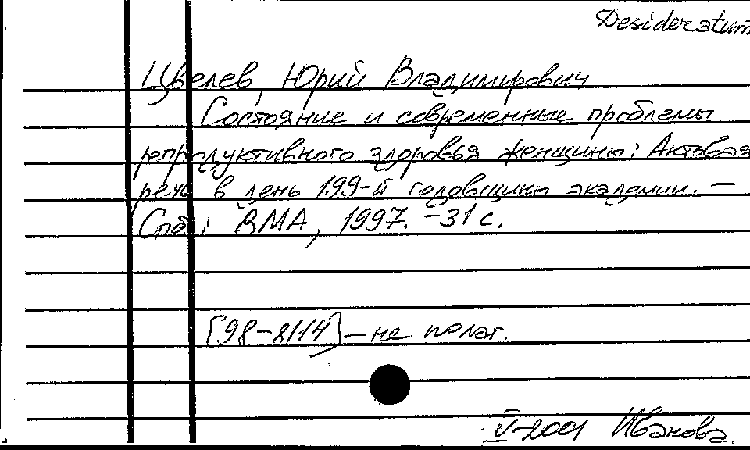 Desideratum
Цвелев, Юрий Владимирович
Состояние и современные проблемы
репродуктивного здоровья женщины: Актовая
речь в день 199-й годовщины академии. –
Спб.: ВМА, 1997. – 31 с.
[98-8114] – не полаг.
V-2001 Иванова.